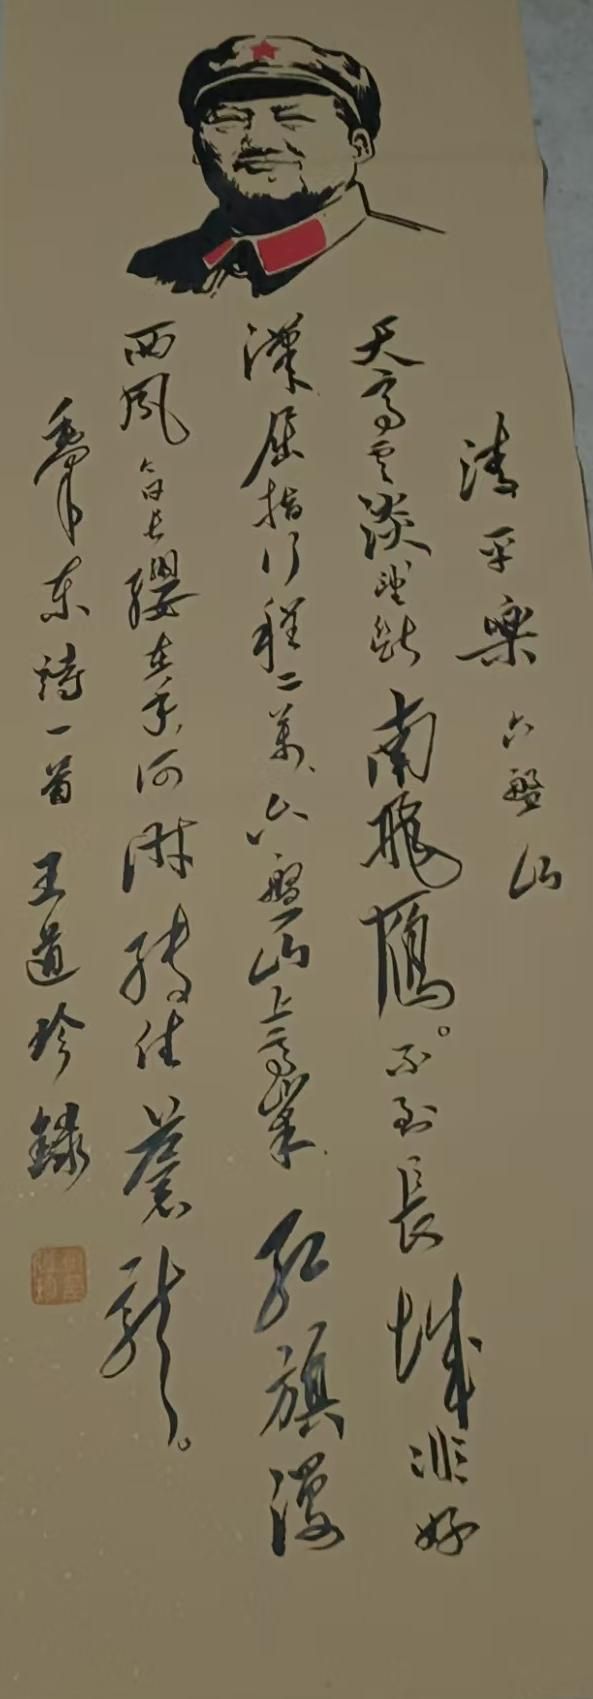 清平樂 六盤山
天高雲淡望斷南飛雁。不到長城非好
漢屈指行程二萬、六盤山上高峯、紅旗漫
西風今日長纓在手、何時縛住蒼龍。
毛澤東詩一首 王道珍錄